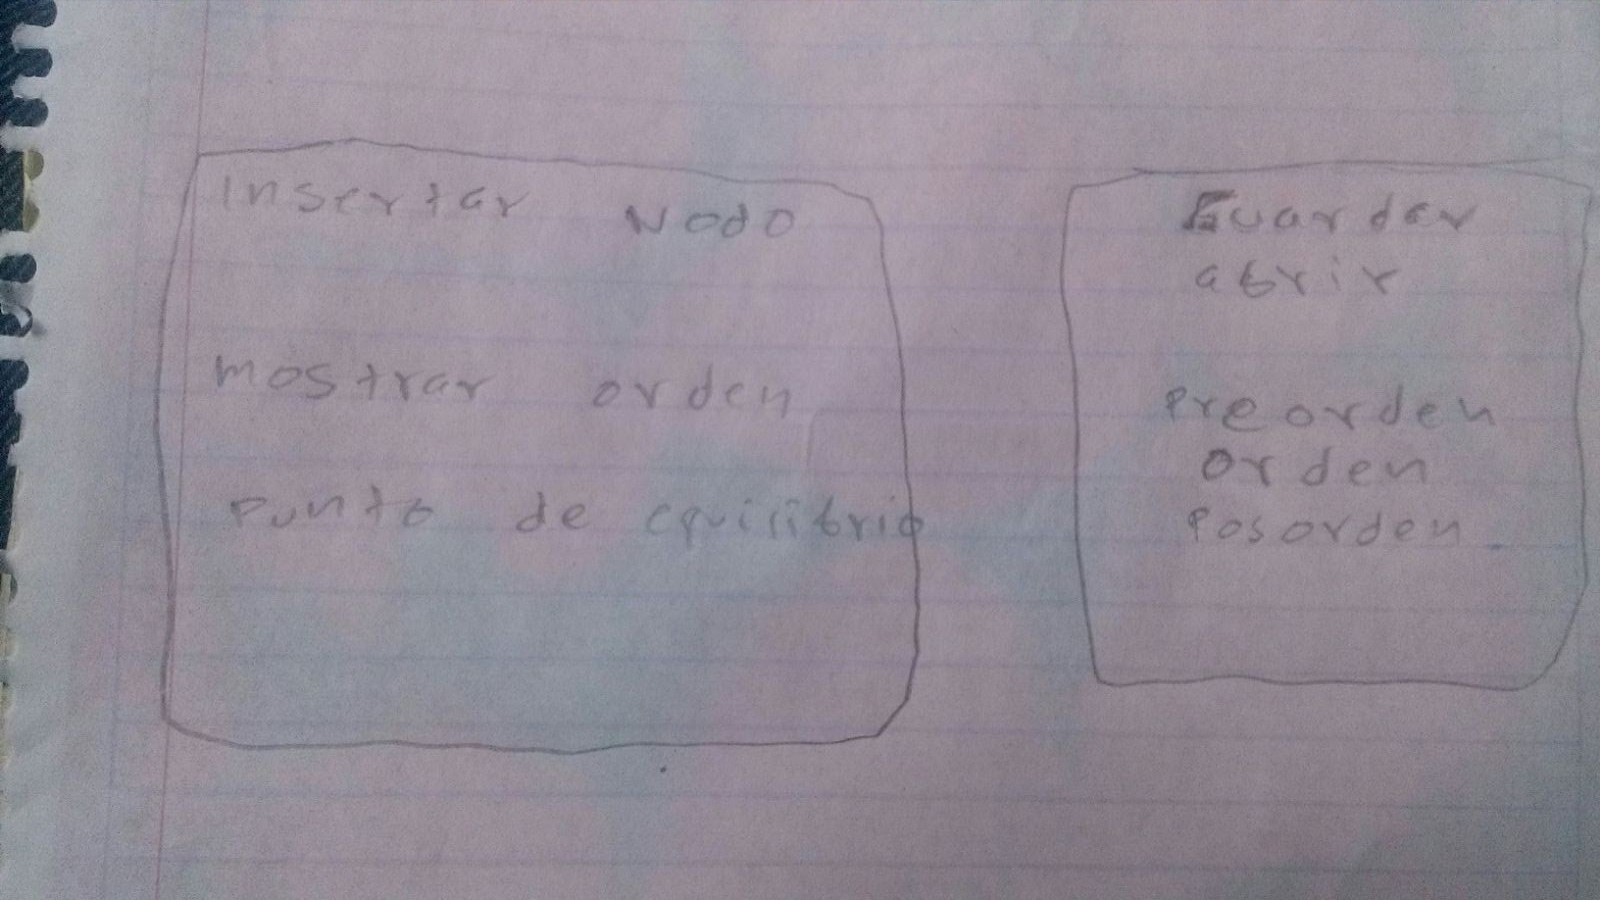 Insertar Nodo
mostrar orden
punto de equilibrio
Guardar
abrir
preorden
orden
posorden